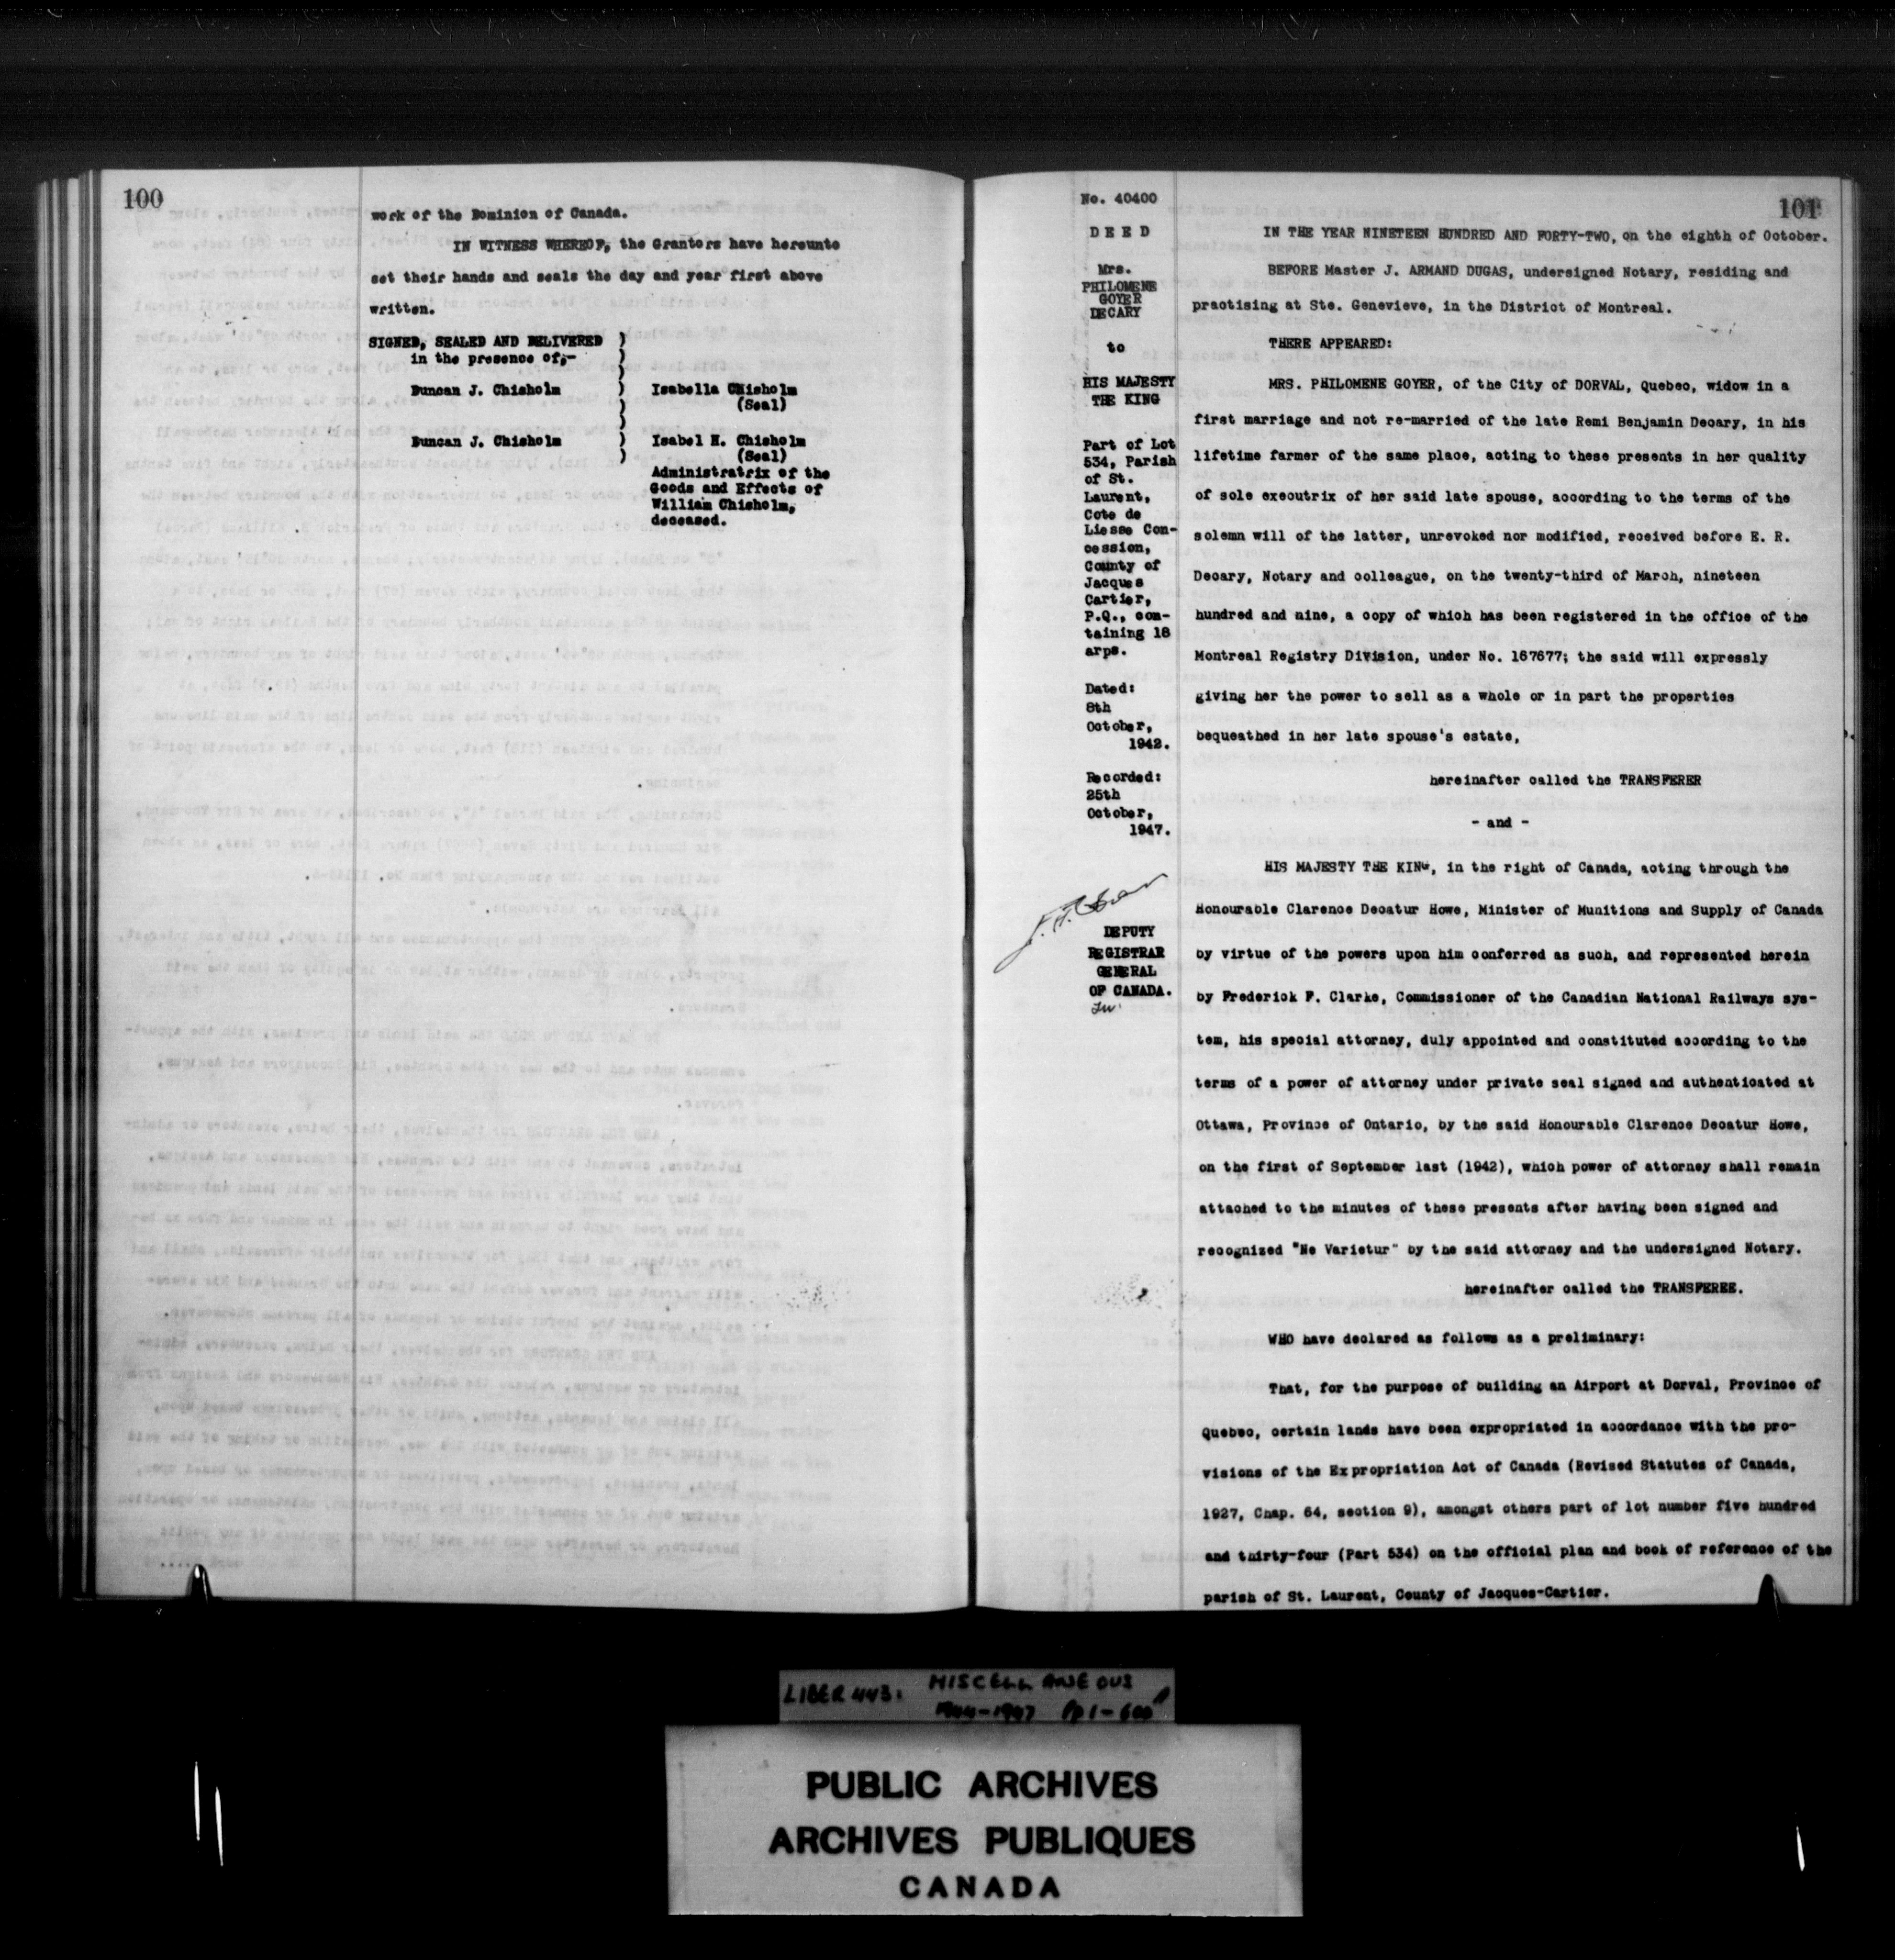 100
work of the Dominion of Canada.
IN WITNESS WHEREOF, the Grantors have hereunto
set their hands and seals the day and year first above
written.
SIGNED, SEALED AND DELIVERED )
in the presence of;- )
)
Duncan J. Chisholm ) Isabella Chisholm
) (Seal)
)
Duncan J. Chisholm ) Isabel H. Chisholm
) (Seal)
Administratrix of the
Goods and Effects of
William Chisholm,
deceased.
No. 40400
DEED
Mrs.
PHILOMENE
GOYER
DECARY
to
HIS MAJESTY
THE KING
Part of Lot
534, Parish
of St.
Laurent,
Cote de
Liesse Con-
cession,
County of
Jacques
Cartier,
P.Q., con-
taining 18
arps.
Dated:
8th
October,
1942.
Recorded:
25th
October,
1947.
DEPUTY
REGISTRAR
GENERAL
OF CANADA.
101
IN THE YEAR NINETEEN HUNDRED AND FORTY-TWO, on the eighth of October.
BEFORE Master J. ARMAND DUGAS, undersigned Notary, residing and
practising at Ste. Genevieve, in the District of Montreal.
THERE APPEARED:
MRS. PHILOMENE GOYER, of the City of DORVAL, Quebec, widow in a
first marriage and not re-married of the late Remi Benjamin Decary, in his
lifetime farmer of the same place, acting to these presents in her quality
of sole executrix of her said late spouse, according to the terms of the
solemn will of the latter, unrevoked nor modified, received before E. R.
Decary, Notary and colleague, on the twenty-third of March, nineteen
hundred and nine, a copy of which has been registered in the office of the
Montreal Registry Division, under No. 167677; the said will expressly
giving her the power to sell as a whole or in part the properties
bequeathed in her late spouse's estate,
hereinafter called the TRANSFERER
- and -
HIS MAJESTY THE KING, in the right of Canada, acting through the
Honourable Clarence Decatur Howe, Minister of Munitions and Supply of Canada
by virtue of the powers upon him conferred as such, and represented herein
by Frederick F. Clarke, Commissioner of the Canadian National Railways sys-
tem, his special attorney, duly appointed and constituted according to the
terms of a power of attorney under private seal signed and authenticated at
Ottawa, Province of Ontario, by the said Honourable Clarence Decatur Howe,
on the first of September last (1942), which power of attorney shall remain
attached to the minutes of these presents after having been signed and
recognized "Ne Varietur" by the said attorney and the undersigned Notary.
hereinafter called the TRANSFEREE.
WHO have declared as follows as a preliminary:
That, for the purpose of building an Airport at Dorval, Province of
Quebec, certain lands have been expropriated in accordance with the pro-
visions of the Expropriation Act of Canada (Revised Statutes of Canada,
1927, Chap. 64, section 9), amongst others part of lot number five hundred
and thirty-four (Part 534) on the official plan and book of reference of the
parish of St. Laurent, County of Jacques-Cartier.
LIBER 443: MISCELLANEOUS
1944-1947 pp 1-600
PUBLIC ARCHIVES
ARCHIVES PUBLIQUES
CANADA